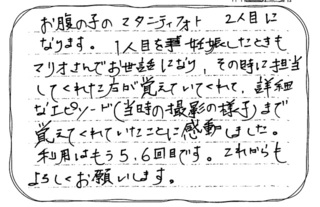 お腹の子のマタニティフォト 2人目に
なります。1人目を妊娠したときも
マリオさんでお世話になり、その時に担当
してくれた方が覚えていてくれて、詳細
なエピソード(当時の撮影の様子)まで
覚えてくれていたことに感動しました。
利用はもう5,6回目です。これからも
よろしくお願いします。